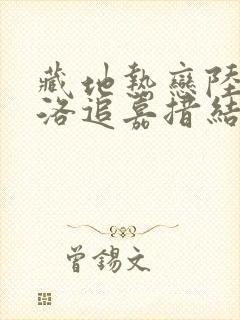 藏地熱戀陸
洛追嘉措結
曾錫文